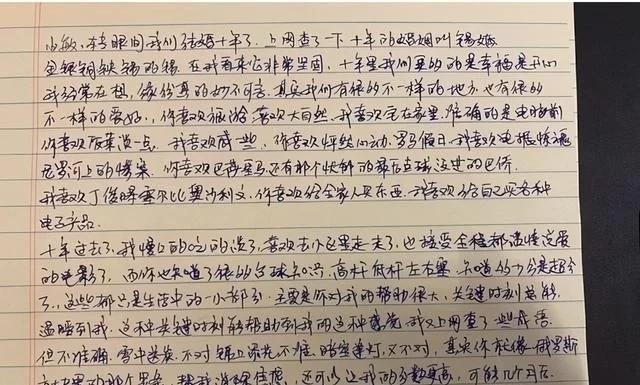 小敏，转眼间我们结婚十年了，上网查了一下十年的婚姻叫锡婚
金银铜铁锡的锡，在我看来它非常坚固，十年里我们要的的是幸福是开心
我经常在想，缘份真的妙不可言，其实我们有很多不一样的地方，也有很多
不一样的爱好，你喜欢旅游喜欢大自然，我喜欢宅在家里，准确的是电脑前
你喜欢饭菜淡一点，我喜欢咸一些，你喜欢怦然心动，罗马假日，我喜欢电锯惊魂
尼罗河上的惨案，你喜欢巴蒂星马还有那个忧郁的最后点球没进的巴乔
我喜欢丁俊晖塞尔比奥沙利文，你喜欢给全家人买东西，我喜欢给自己买各种
电子产品.
十年过去了，我慢口的吃的淡了，喜欢去外边走走了，也接受全程都温情没爱
的电影了，而你也知道了很多台球知识，高杆低杆左右塞，知道的十分是超分
了，这些都只是生活中的一小部分，主要是你对我的帮助很大，关键时刻总能
温暖到我，这种关键时刻能帮助到我的这种感觉，我又上网查了一些成语
但不准确，雪中送炭，不对，锦上添花，不准，暗室逢灯，又不对，其实你就像俄罗斯